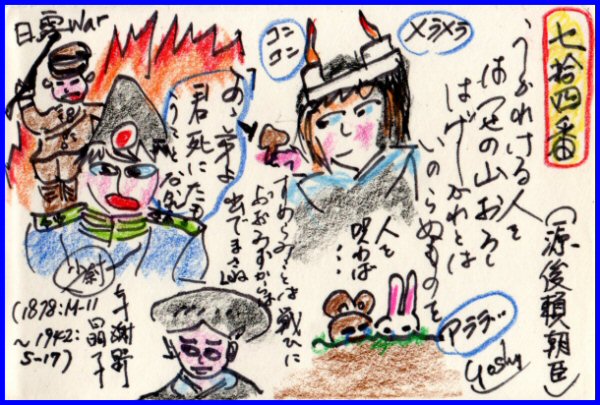 七拾四番
うかれける人を
はつせの山おろし
はげしかれとは
いのらぬものを
(源俊頼朝臣)
メラメラ
コンコン
人を
呪わば…
アララ…
yoshy
日露War
「あゝ弟よ
君死にたも
うことなかれ
すめらみことは戦ひに
おおみずからは
出でまさね
与謝野
晶子
(1878:M-11
~1942:
S-17)